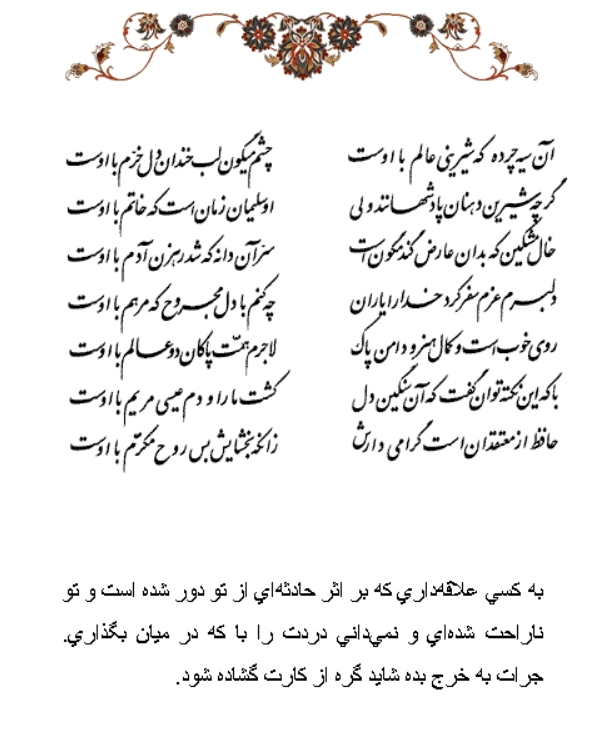 آن سیه چرده که شیرینی عالم با اوست چشم میگون لب خندان دل خرّم با اوست
گر چه شیرین دهنان پادشهانند ولی او سلیمان زمان است که خاتم با اوست
خال مشکین که بدان عارض گندمگون است سرّ آن دانه که شد رهزن آدم با اوست
دلبرم عزم سفر کرد خدا را یاران چه کنم با دل مجروح که مرهم با اوست
روی خوب است و کمال هنر و دامن پاک لاجرم همّت پاکان دو عالم با اوست
با که این نکته توان گفت که آن سنگین دل کشت ما را و دم عیسی مریم با اوست
حافظ از معتقدان است گرامی دارش زانکه بخشایش بس روح مکرّم با اوست
به كسي علاقه‌داري كه بر اثر حادثه‌اي از تو دور شده است و تو
ناراحت شده‌اي و نمي‌داني دردت را با كه در ميان بگذاري.
جرات به خرج بده شايد گره از كارت گشاده شود.